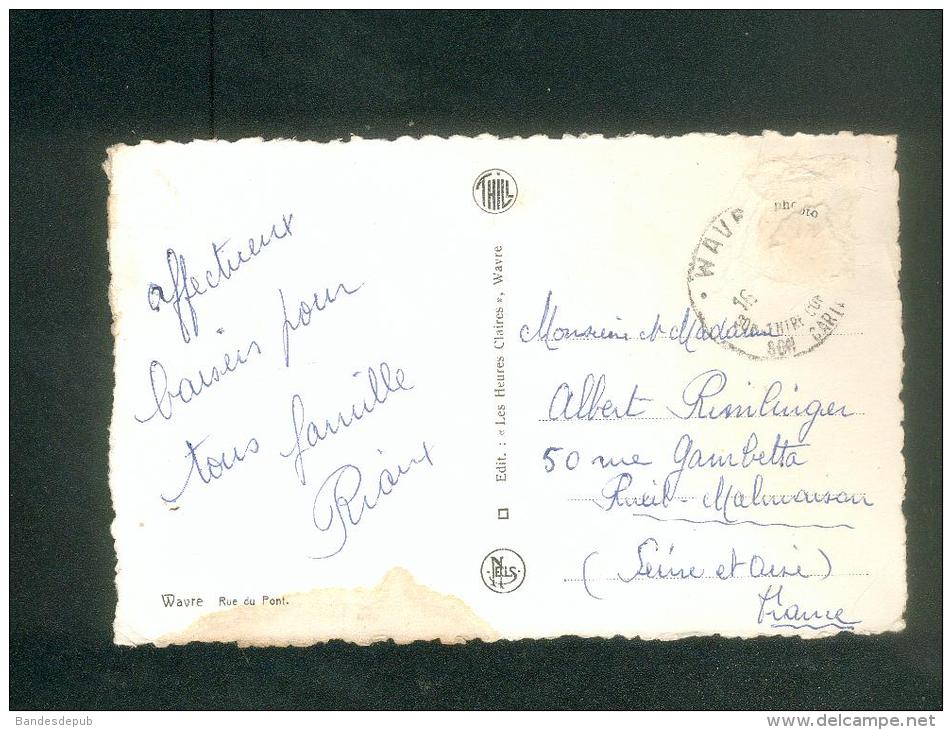 affectueux
baisers pour
tous famille
Rioux
Wavre Rue du Pont.
THILL
Edit. : « Les Heures Claires », Wavre
NELS
photo
WAVR
16
Monsieur et Madame
Albert Rimlinger
50 rue Gambetta
Rueil-Malmaison
(Seine et Oise)
France
Bandesdepub
www.delcampe.net